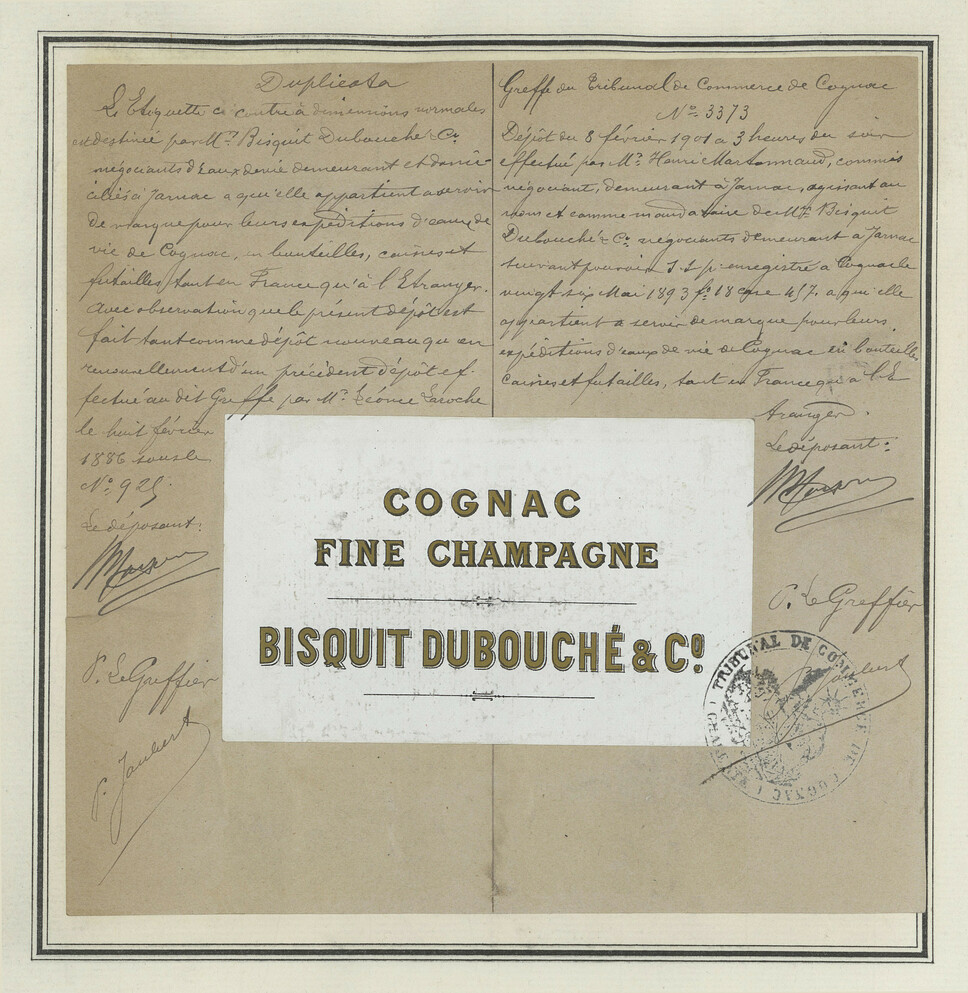 Duplicata
L'Etiquette ci contre à dimensions normales
est destinée par Mrs Bisquit Dubouché & Co
négociants d'Eaux de vie demeurant et domi-
ciliés à Jarnac a qu'elle appartient a servir
de marque pour leurs expéditions d'eaux de
vie de Cognac, en bouteilles, caisses et
futailles, tant en France qu'à l'Etranger.
Avec observation que le présent dépôt est
fait tant comme dépôt nouveau qu'en
renouvellement d'un précédent dépôt ef-
fectué au dit Greffe par Mr. Léonce Laroche
le huit février
1886 sous le
No. 925.
Le déposant:
P. Le Greffier
P. Jaubert
Greffe du Tribunal de Commerce de Cognac
No. 3373
Dépôt du 8 février 1901 a 3 heures du soir
effectué par Mr. Henri Martonnaud, commis
négociant, demeurant à Jarnac, agissant au
nom et comme mandataire de Mrs. Bisquit
Dubouché & Co. négociants demeurant a Jarnac
suivant pouvoir S. S. p. enregistré a Cognac le
vingt six Mai 1893 fo. 18 case 4/7. a qu'elle
appartient a servir de marque pour leurs
expéditions d'eaux de vie de Cognac en bouteilles
caisses et futailles, tant en France qu'à l'E
tranger.
Le déposant:
P. Le Greffier
P. Jaubert
COGNAC
FINE CHAMPAGNE
BISQUIT DUBOUCHÉ & Co.
TRIBUNAL DE COMMERCE DE COGNAC